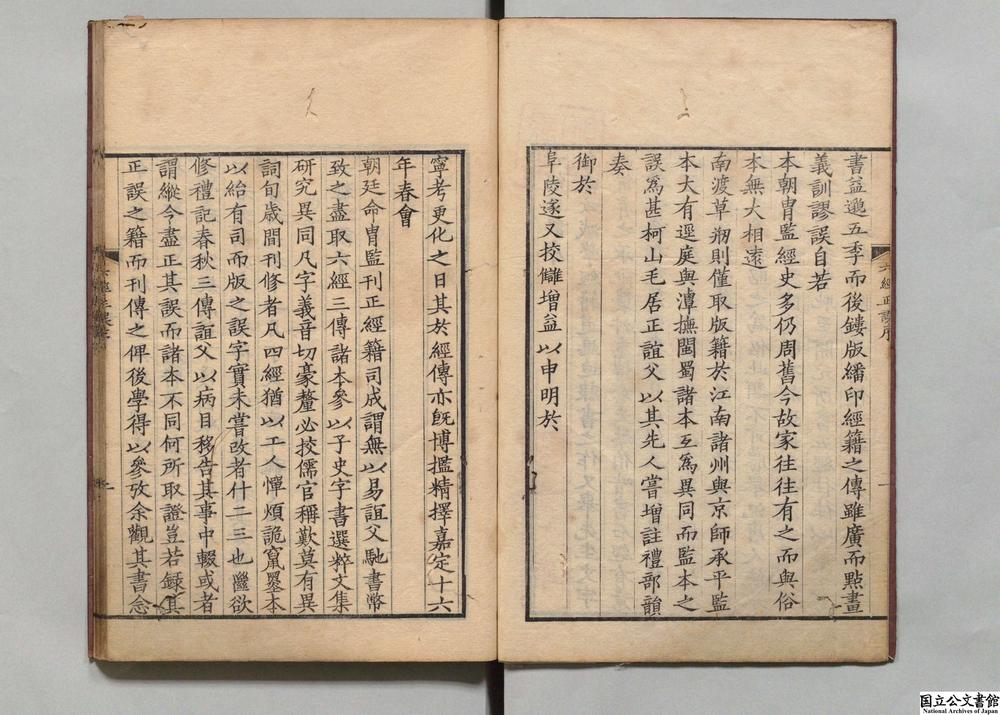 書益遁五季而後鏤版繙印經籍之傳雖廣而點畫
義訓謬誤自若
本朝冑監經史多仍周舊今故家往往有之而與俗
本無大相遠
南渡草刱則僅取版籍於江南諸州與京師承平監
本大有逕庭與潭撫閩蜀諸本互爲異同而監本之
誤爲甚柯山毛居正誼父以其先人嘗增註禮部韻
奏
御於
阜陵遂又挍讎增益以申明於
六經正誤序
一
寧考更化之日其於經傳亦旣博擥精擇嘉定十六
年春會
朝廷命冑監刊正經籍司成謂無以易誼父馳書幣
致之盡取六經三傳諸本參以子史字書選粹文集
研究異同凡字義音切豪釐必挍儒官稱歎莫有異
詞旬歳間刊修者凡四經猶以工人憚煩詭竄墨本
以紿有司而版之誤字實未嘗改者什二三也繼欲
修禮記春秋三傳誼父以病目移告其事中輟或者
謂縱今盡正其誤而諸本不同何所取證豈若録其
正誤之籍而刊傳之俾後學得以參攷余觀其書念
国立公文書館
National Archives of Japan